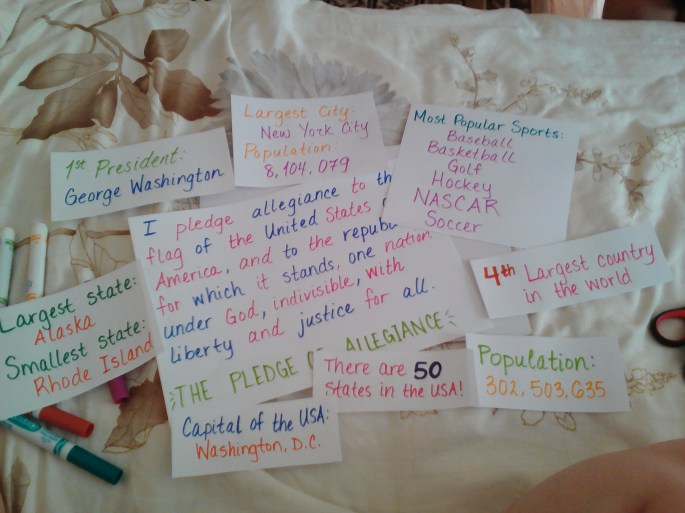 1st President:
George Washington
Largest City:
New York City
Population:
8,104,079
Most Popular Sports:
Baseball
Basketball
Golf
Hockey
NASCAR
Soccer
I pledge allegiance to th
flag of the United States
America, and to the repub
for which it stands, one nation
under God, indivisible, with
liberty and justice for all.
THE PLEDGE OF ALLEGIANCE
4th Largest country
in the world
Largest state:
Alaska
Smallest state:
Rhode Island
There are 50
States in the USA!
Population:
302,503,635
Capital of the USA:
Washington, D.C.